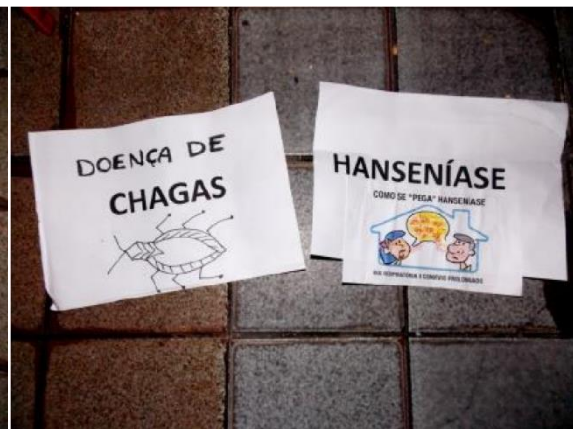 DOENÇA DE
CHAGAS
HANSENÍASE
COMO SE "PEGA" HANSENÍASE
VIA RESPIRATÓRIA E CONVÍVIO PROLONGADO